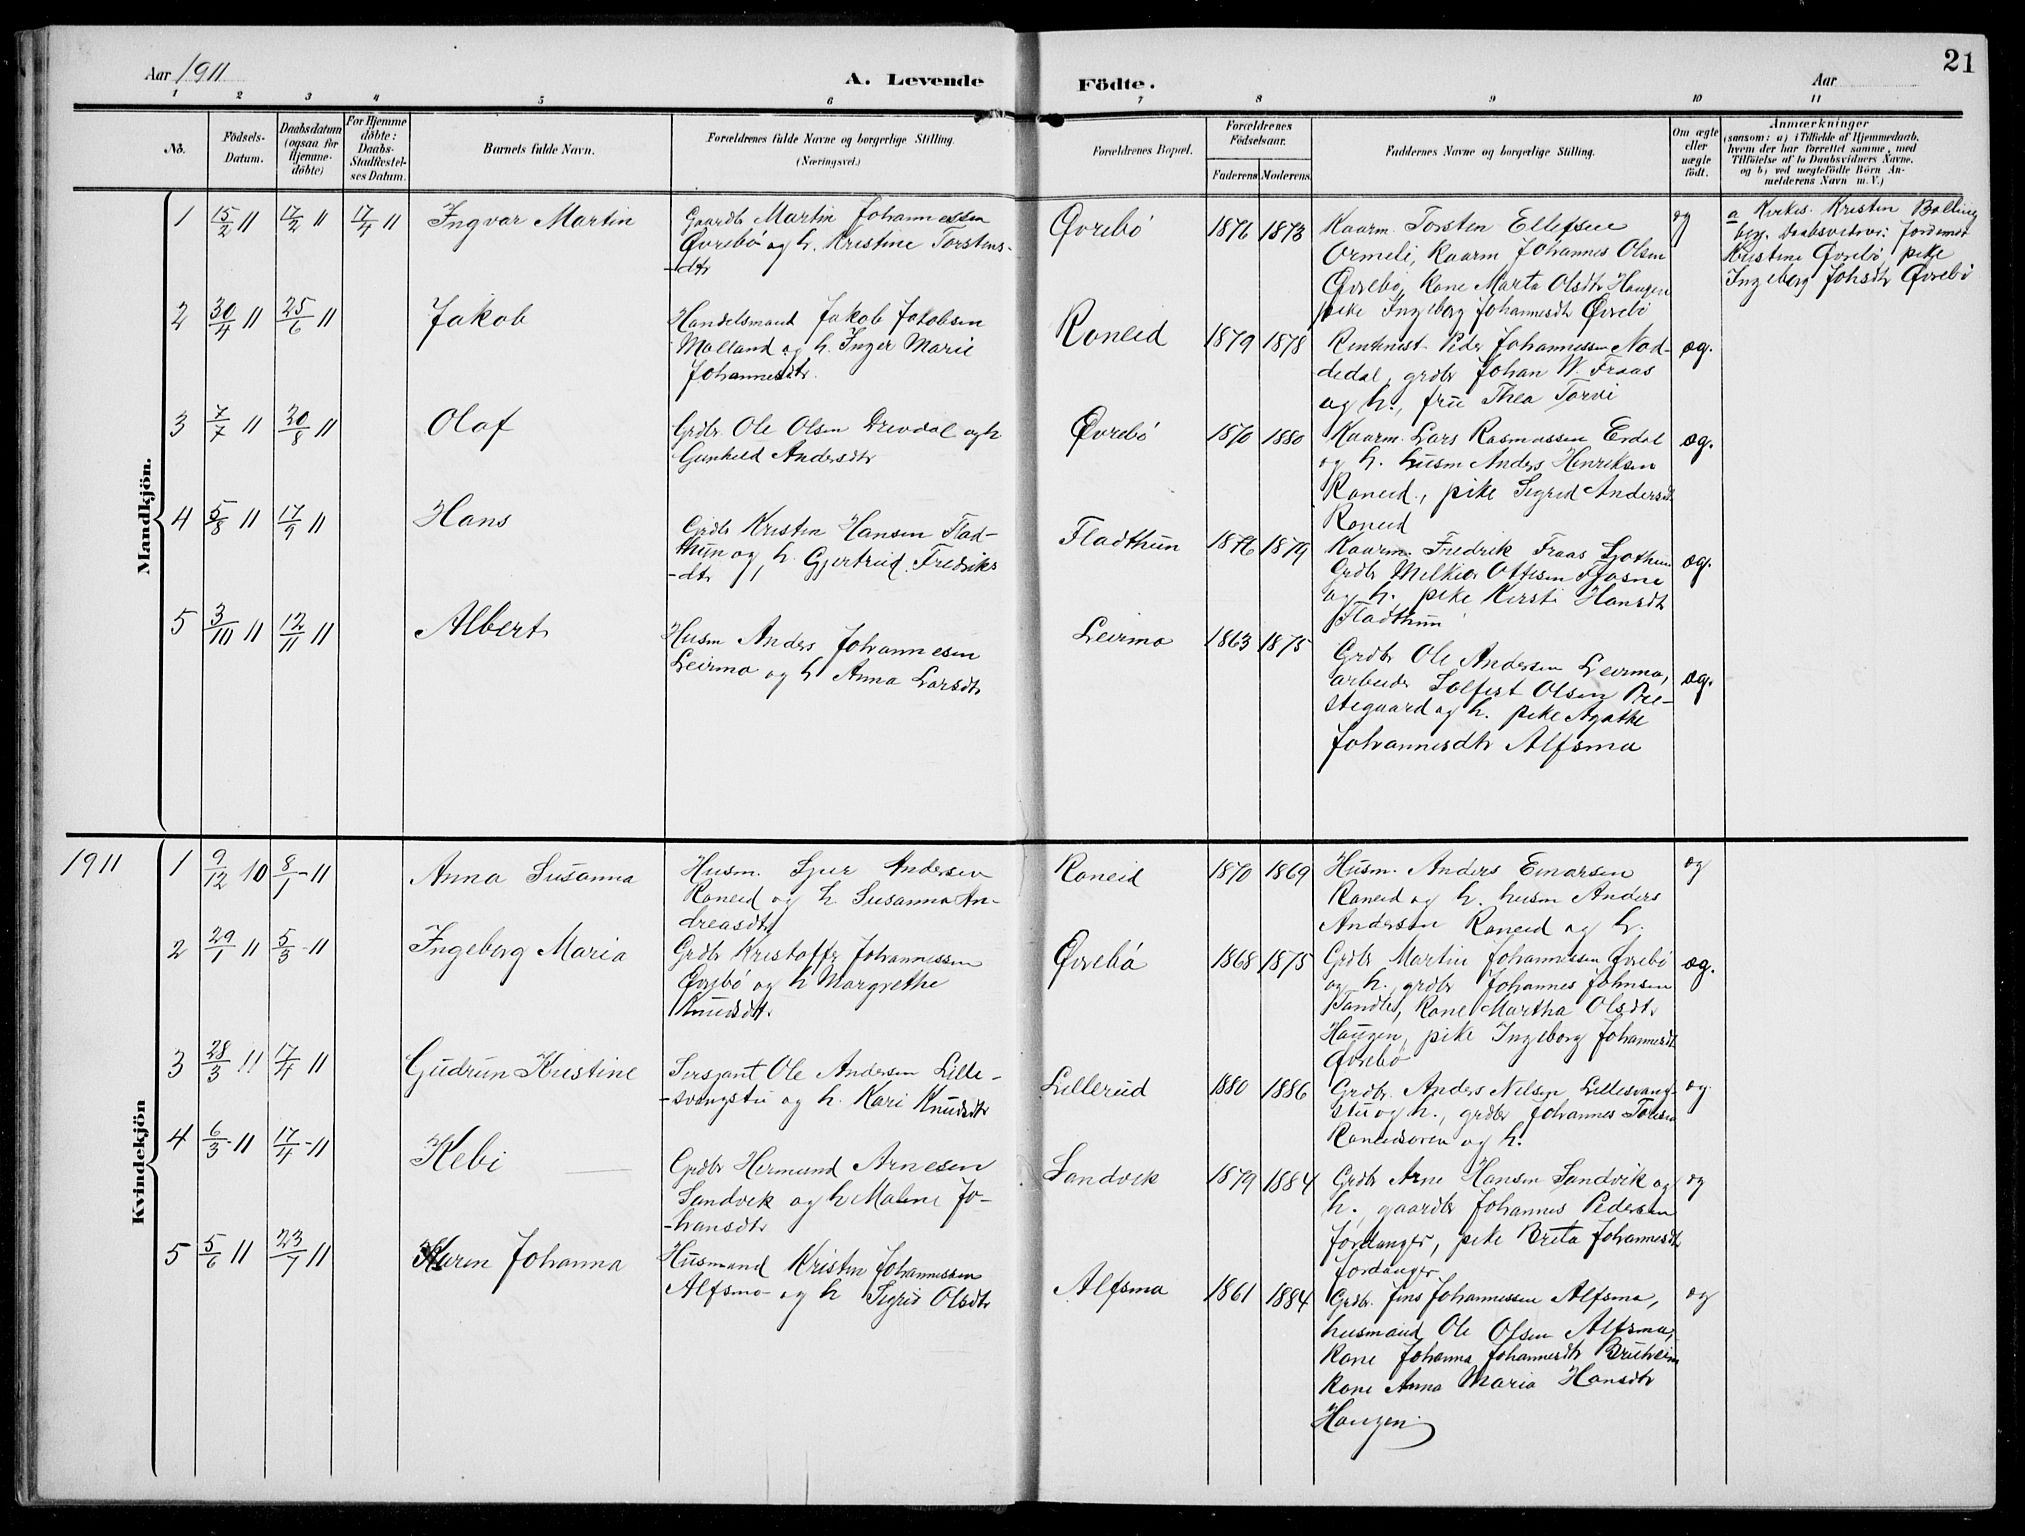 21
Aar 1911
A. Levende
Födte.
Aar
1 2 3 4 5 6 7 8 9 10 11
No.
Födsels-
Datum.
Daabsdatum
(ogsaa for
Hjemme-
döbte)
For Hjemme
döbte:
Daabs-
Stadfestel-
ses Datum.
Barnets fulde Navn.
Forældrenes fulde Navne og borgerlige Stilling.
(Næringsvei.)
Forældrenes Bopæl.
Forældrenes
Födselsaar.
Faderens Moderens
Faddernes Navne og borgerlige Stilling.
Om ægte
eller
uægte
födt.
Anmærkninger
(saasom: a) i Tilfælde af Hjemmedaab,
hvem der har forrettet samme, med
Tilföielse af to Daabsvidners Navne.
og b) ved uægtefödte Börn An-
melderens Navn m. V.)
Mandkjön.
1 15/2 11 17/2 11 17/4 11 Ingvar Martin
Gaardbr Martin Johannessen
Øvrebö og h. Kristine Torstens-
-dtr
Øvrebö 1876 1873
Kaarm. Torsten Ellefsen
Ormeli, Kaarm Johannes Olsen
Øvrebö, Kone Marta Olsdtr Haugen
pike Ingeborg Johannesdtr Øvrebö
og
a Kirkes. Kristen Bolling
berg. Daabsvidner: Jordemor
Kristine Øvrebö, pike
Ingeborg Johsdtr Øvrebö
2 30/4 11 25/6 11 Jakob
Handelsmand Jakob Jakobsen
Molland og h. Inger Marie
Johannesdtr.
Roneid 1879 1878
Rentenist Peder Johannessen Nad-
dedal, grdbr Johan W. Fraas
og h., fru Thea Torvi
æg.
3 7/7 11 20/8 11 Olaf
Grdbr Ole Olsen Drevdal og h
Gunhild Andersdtr
Øvrebö 1870 1880
Kaarm. Lars Rasmussen Erdal
og h. husm Anders Henriksen
Roneid, pike Sigrid Andersdt
Roneid
æg.
4 5/8 11 17/9 11 Hans
Grdbr Kristen Hansen Flad-
thun og h. Gjertrud Fredriks
-dtr
Fladthun 1876 1879
Kaarm. Fredrik Fraas Ljøthun
Grdbr Melkior Ottesen Fjøsne
og h. pike Kirsti Hansdtr
Fladthun
æg.
5 3/10 11 12/11 11 Albert
Husm Anders Johannesen
Leirmo og h Anna Larsdtr
Leirmo 1863 1875
Grdbr Ole Andersen Leirmo,
arbeider Solfest Olsen Pre-
stegaard og h. pike Agathe
Johannesdtr Alfsmo
æg.
1911
Kvindekjön
1 9/12 10 8/1 - 11 Anna Susanna
Husm. Sjur Andersen
Roneid og h Susanna An-
dreasdtr
Roneid 1870 1869
Husm. Anders Einarsen
Roneid og h. husm Anders
Andersen Roneid og h.
og
2 29/1 11 5/3 - 11 Ingeborg Maria
Grdbr Kristoffer Johannessen
Øvrebö og h Margrethe
Knudsdtr.
Øvrebö 1868 1875
Grdbr Martin Johannessen Øvrebö
og h. grdbr Johannes Johnsen
Tandle, Kone Martha Olsdtr
Haugen, pike Ingeborg Johannesdt
Øvrebö
æg.
3 28/3 11 17/4 11 Gudrun Kristine
Sersjant Ole Andersen Lille-
-svangstu og h. Kari Knudsdtr
Lillerud 1880 1886
Grdbr. Anders Nilsen Lillesvang-
stu og h., grdbr Johannes Tolesen
Roneidsören og h.
og
4 6/3 - 11 17/4 - 11 Kebi
Grdbr Hermund Arnesen
Sandvik og h Malene Jo-
-hansdtr
Sandvik 1879 1884
Grdbr Arne Hansen Sandvik og
h. gaardbr Johannes Pedersen
Jordanger, pike Brita Johannesdtr
Jordanger
og
5 5/6 11 23/7 11 Karen Johanna
Husmand Kristen Johannessen
Alfsmo- og h Sigrid Olsdtr
Alfsmo 1861 1884
Grdbr. Jens Johannessen Alfsmo,
husmand Ole Olsen Alfsmo,
Kone Johanna Johannesdtr Bruheim
Kone Anna Maria Hansdtr
Haugen.
og